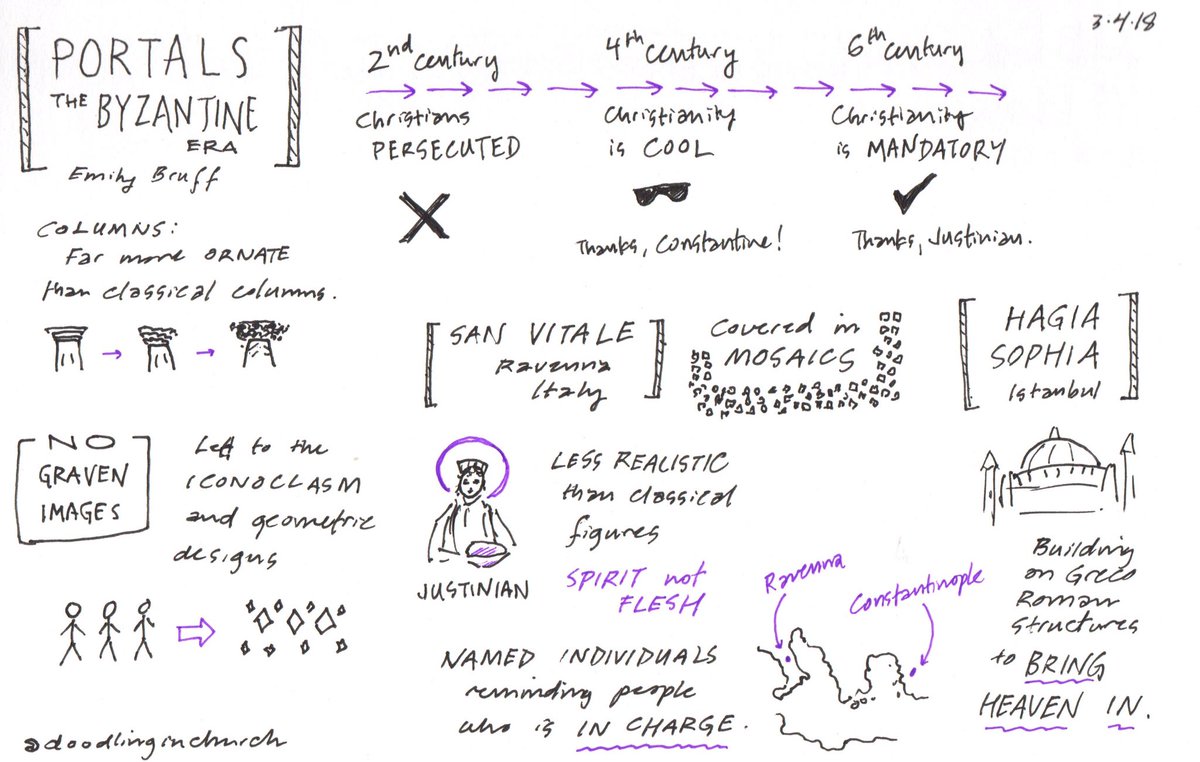 3.4.18
PORTALS
THE BYZANTINE
ERA
Emily Bruff
2nd century
Christians
PERSECUTED
4th century
Christianity
is COOL
Thanks, Constantine!
6th century
Christianity
is MANDATORY
Thanks, Justinian.
COLUMNS:
Far more ORNATE
than classical columns.
NO
GRAVEN
IMAGES
Led to the
ICONOCLASM
and geometric
designs
@doodlinginchurch
SAN VITALE
Ravenna
Italy
Covered in
MOSAICS
JUSTINIAN
LESS REALISTIC
than classical
figures
SPIRIT not
FLESH
NAMED INDIVIDUALS
reminding people
who is IN CHARGE.
Ravenna
Constantinople
HAGIA
SOPHIA
Istanbul
Building
on Greco
Roman
structures
to BRING
HEAVEN IN.